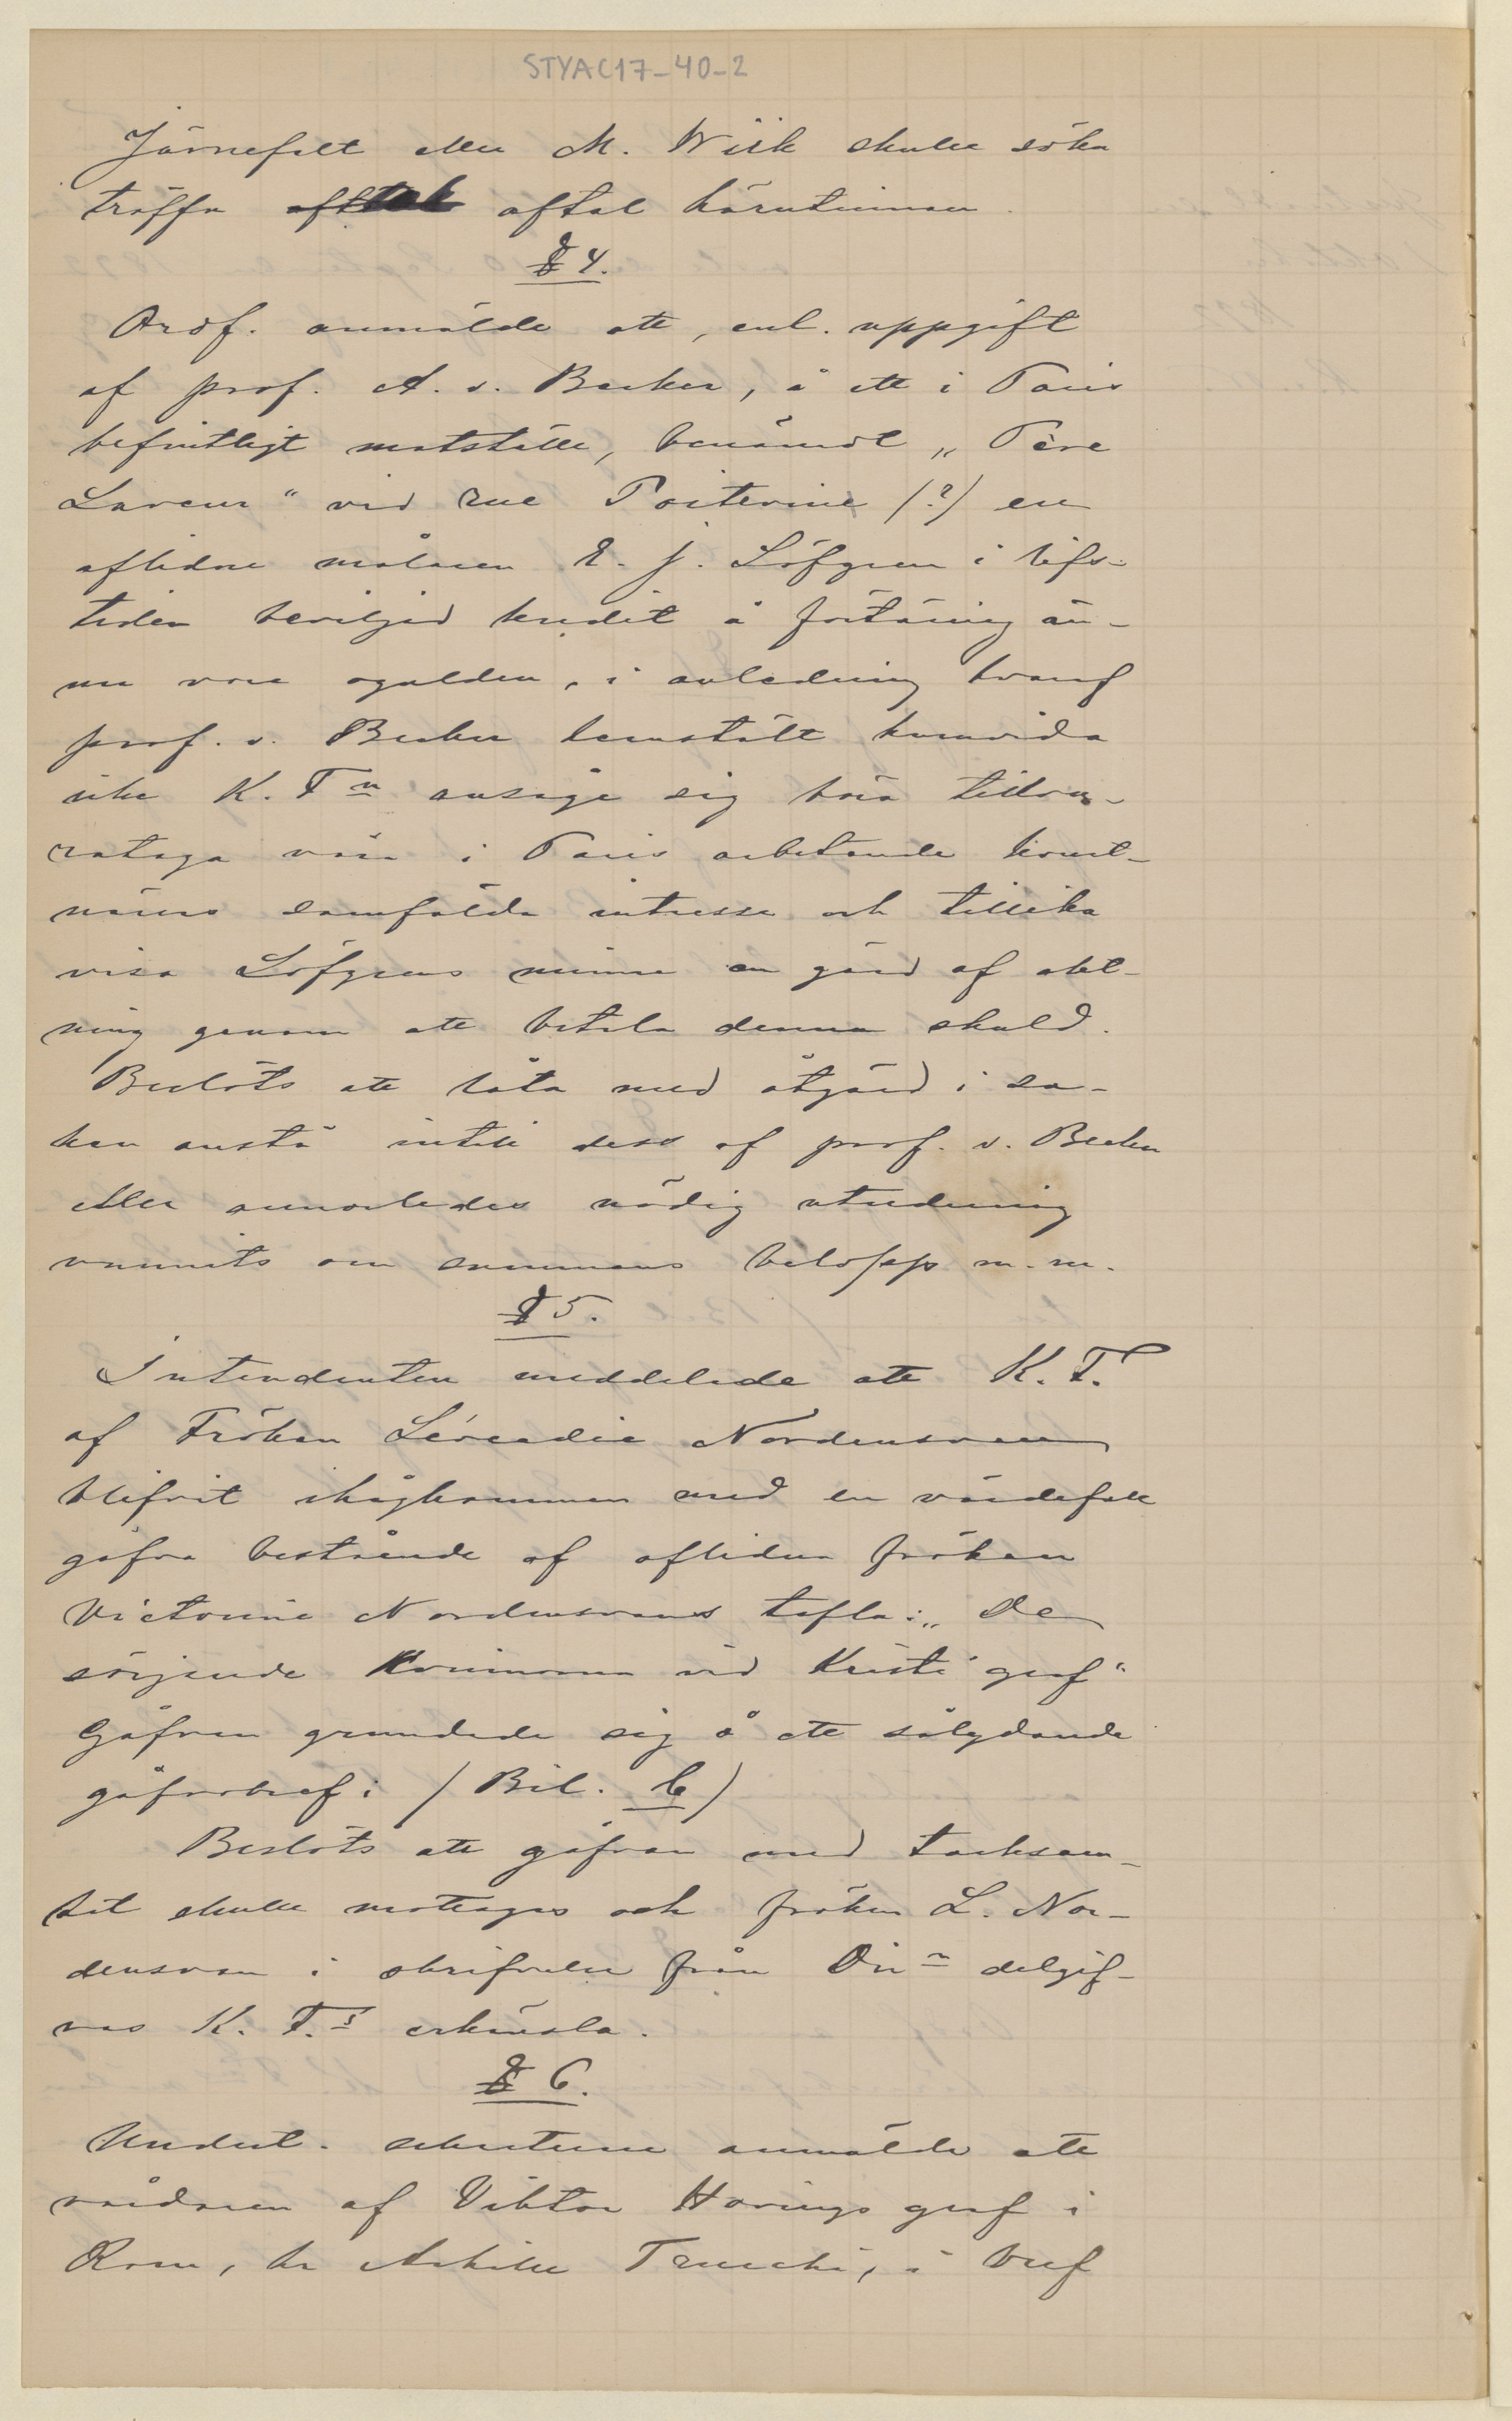 STYAC17-40-2
Järnefelt eller M. Wiik skulle söka
träffa aftal härutinnan.
§ 4.
Ordf. anmälde att, enl. uppgift
af prof. A. v. Becker, å ett i Paris
befintligt matställe, benämdt „Père
Laveur" vid rue Poitevine (?) en
aflidne målaren E. J. Löfgren i lifs-
tiden beviljad kredit å förtäring än-
nu vore ogulden, i anledning hvaraf
prof. v. Becker hemstält huruvida
icke K. F:n ansåge sig böra tillva-
rataga våra i Paris arbetande konst-
närers samfälda intresse och tillika
visa Löfgrens minne en gärd af akt-
ning genom att betala denna skuld.
Beslöts att låta med åtgärd i sa-
ken anstå intill dess af prof. v. Becker
eller annorledes nödig utredning
vunnits om summans belopp m.m.
§ 5.
Intendenten meddelade att K. F.
af Fröken Léocadie Nordensvan
blifvit ihågkommen med en värdefull
gåfva bestående af aflidna fröken
Victorine Nordensvans tafla: „De
sörjande kvinnorna vid Kristi graf"
Gåfvan grundade sig å ett sålydande
gåfvobref: (Bil. C)
Beslöts att gåfvan med tacksam-
het skulle mottagas och fröken L. Nor-
densvan i skrifvelse från Din delgif-
vas K. F.s erkänsla.
§ 6.
Undert. sekreterare anmälde att
vårdaren af Viktor Hovings graf i
Rom, hr Achille Trucchi, i bref